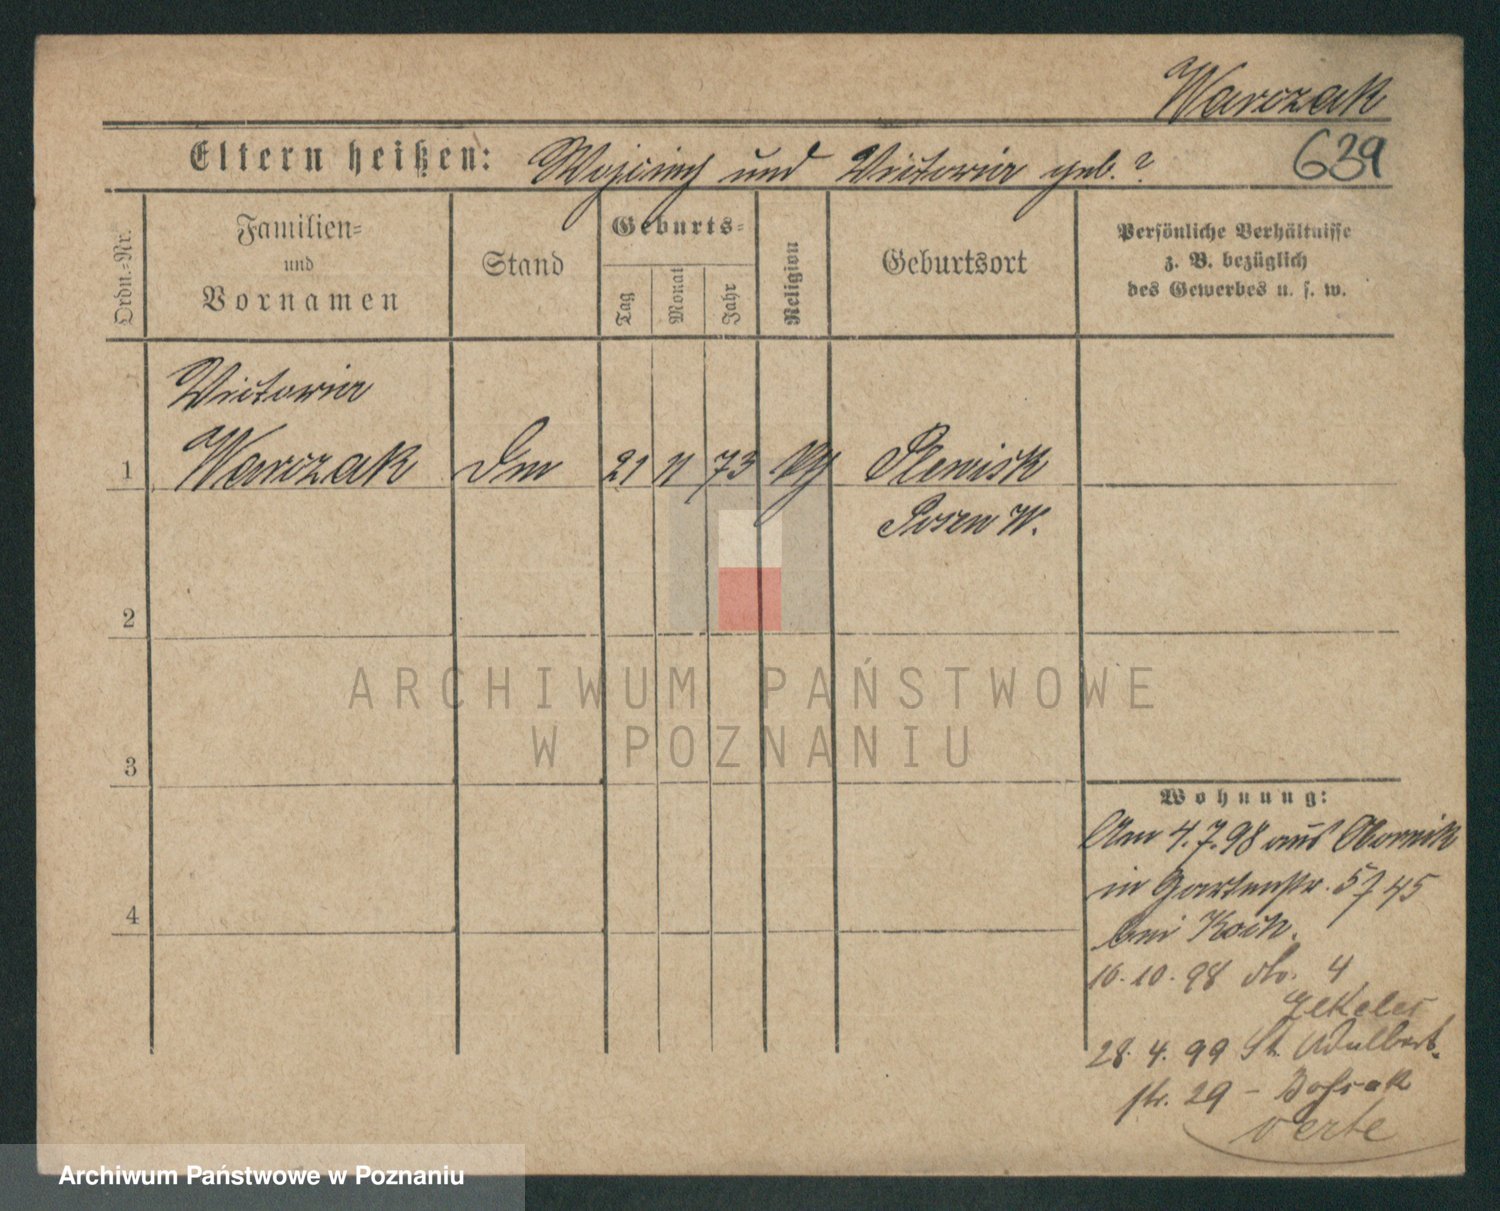 Warczak
639
Eltern heißen: Wojciech und Victoria geb. ?
Ordn.-Nr.
Familien-
und
Vornamen
Stand
Geburts-
Tag
Monat
Jahr
Religion
Geburtsort
Persönliche Verhältnisse
z. B. bezüglich
des Gewerbes u. s. w.
Victoria
1 Warczak 21 11 73
Posen W.
2
3
4
ARCHIWUM PAŃSTWOWE
W POZNANIU
Wohnung:
4.7.98 aus Obornik
in Gartenstr. 45
bei Koch.
10.10.98 do. 4
28.4.99 St. Adalbert-
str. 29 –
verte
Archiwum Państwowe w Poznaniu